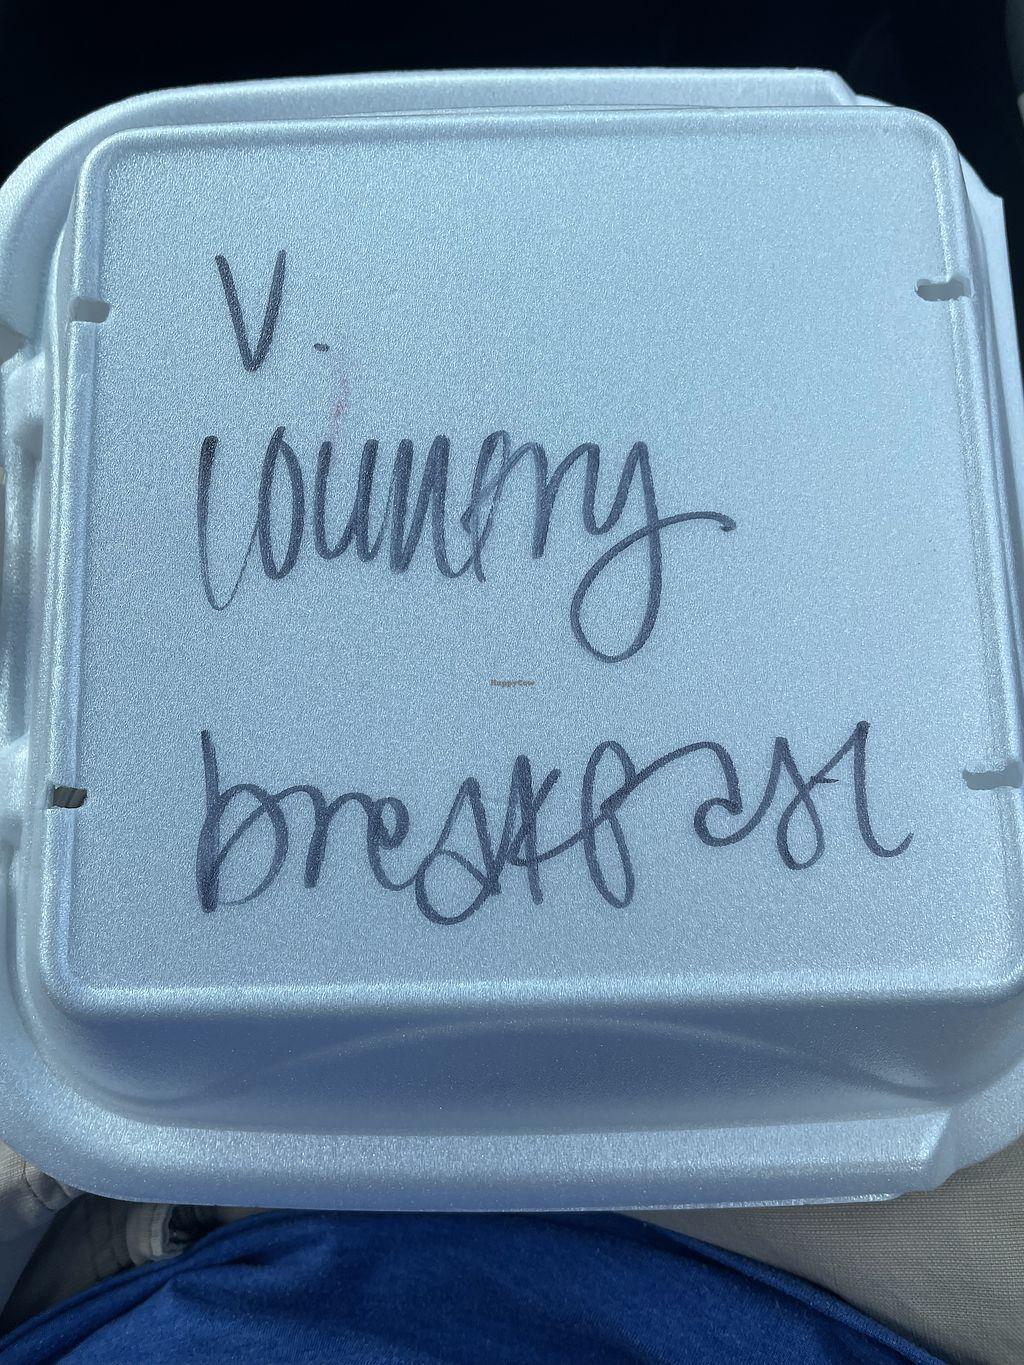 V.
Country
HappyCow
breakfast